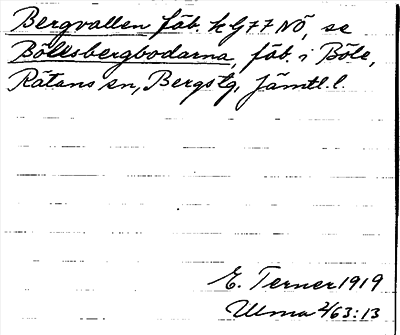 Bergvallen fäb. k G77 NÖ, se
Bölesbergbodarna, fäb. i Böle,
Rätans sn, Bergs tg, Jämtl. l.
E. Terner 1919
Ulma 2/63:13